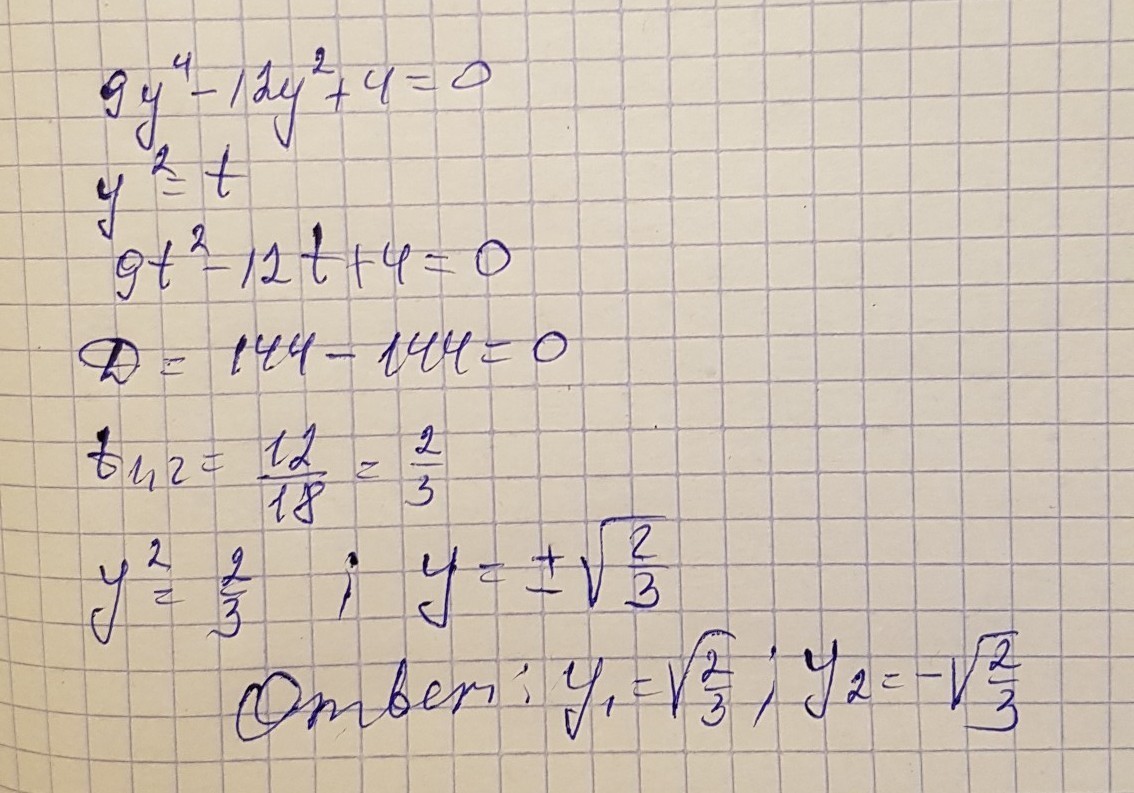 9y⁴ - 12y² + 4 = 0
y² = t
9t² - 12t + 4 = 0
D = 144 - 144 = 0
t₁,₂ = 12/18 = 2/3
y² = 2/3 ; y = ± √(2/3)
Ответ: y₁ = √(2/3) ; y₂ = -√(2/3)